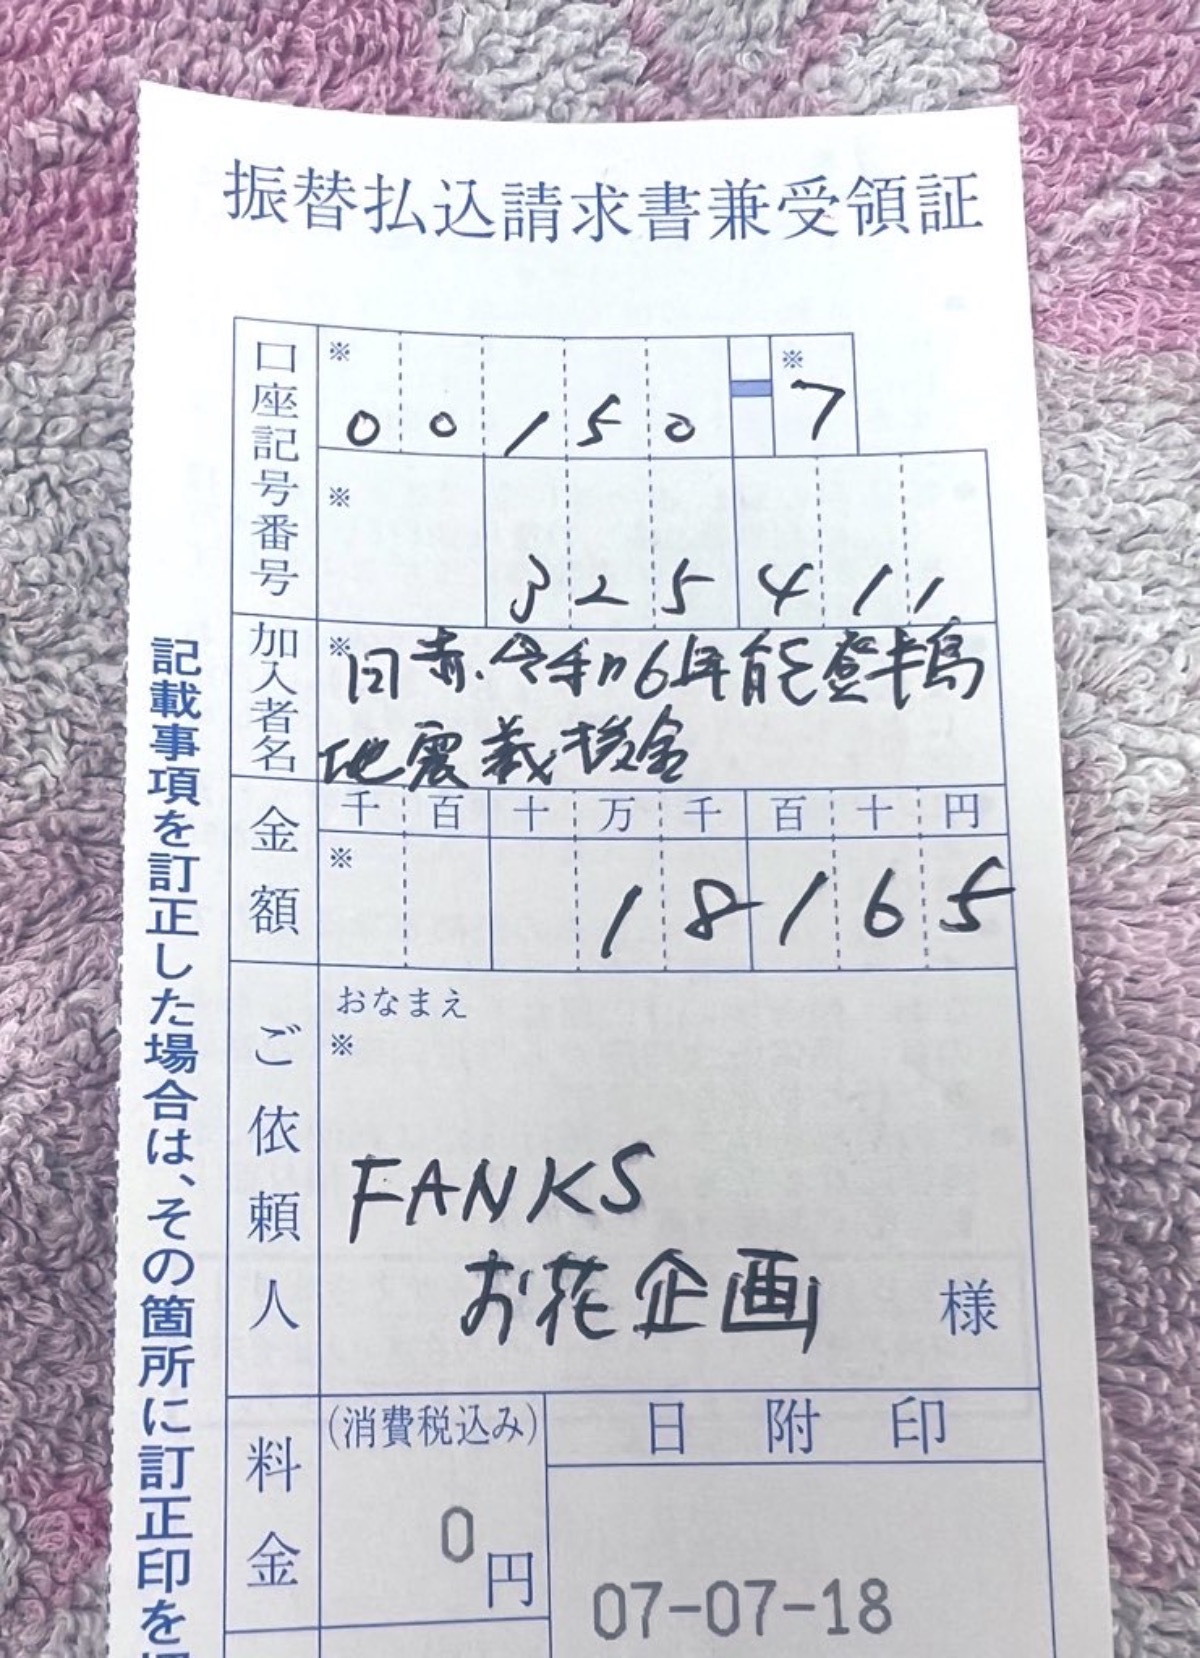 振替払込請求書兼受領証
口座記号番号
※ 00150 - ※ 7
※ 325411
加入者名
※ 日赤令和6年能登半島
地震義援金
金額
千 百 十 万 千 百 十 円
※ 18165
ご依頼人
おなまえ
※
FANKS
お花企画 様
料金
(消費税込み)
0円
日附印
07-07-18
記載事項を訂正した場合は、その箇所に訂正印を